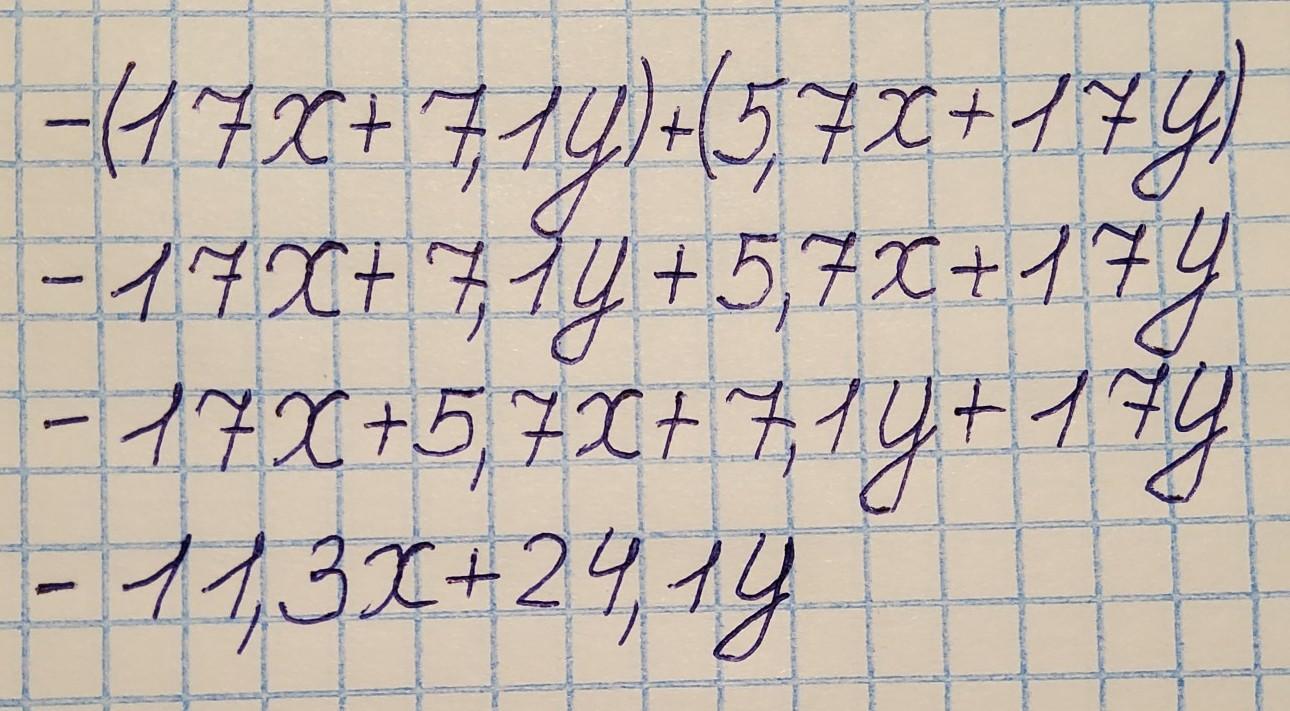 -(17x+7,1y)+(5,7x+17y)
-17x+7,1y+5,7x+17y
-17x+5,7x+7,1y+17y
-11,3x+24,1y